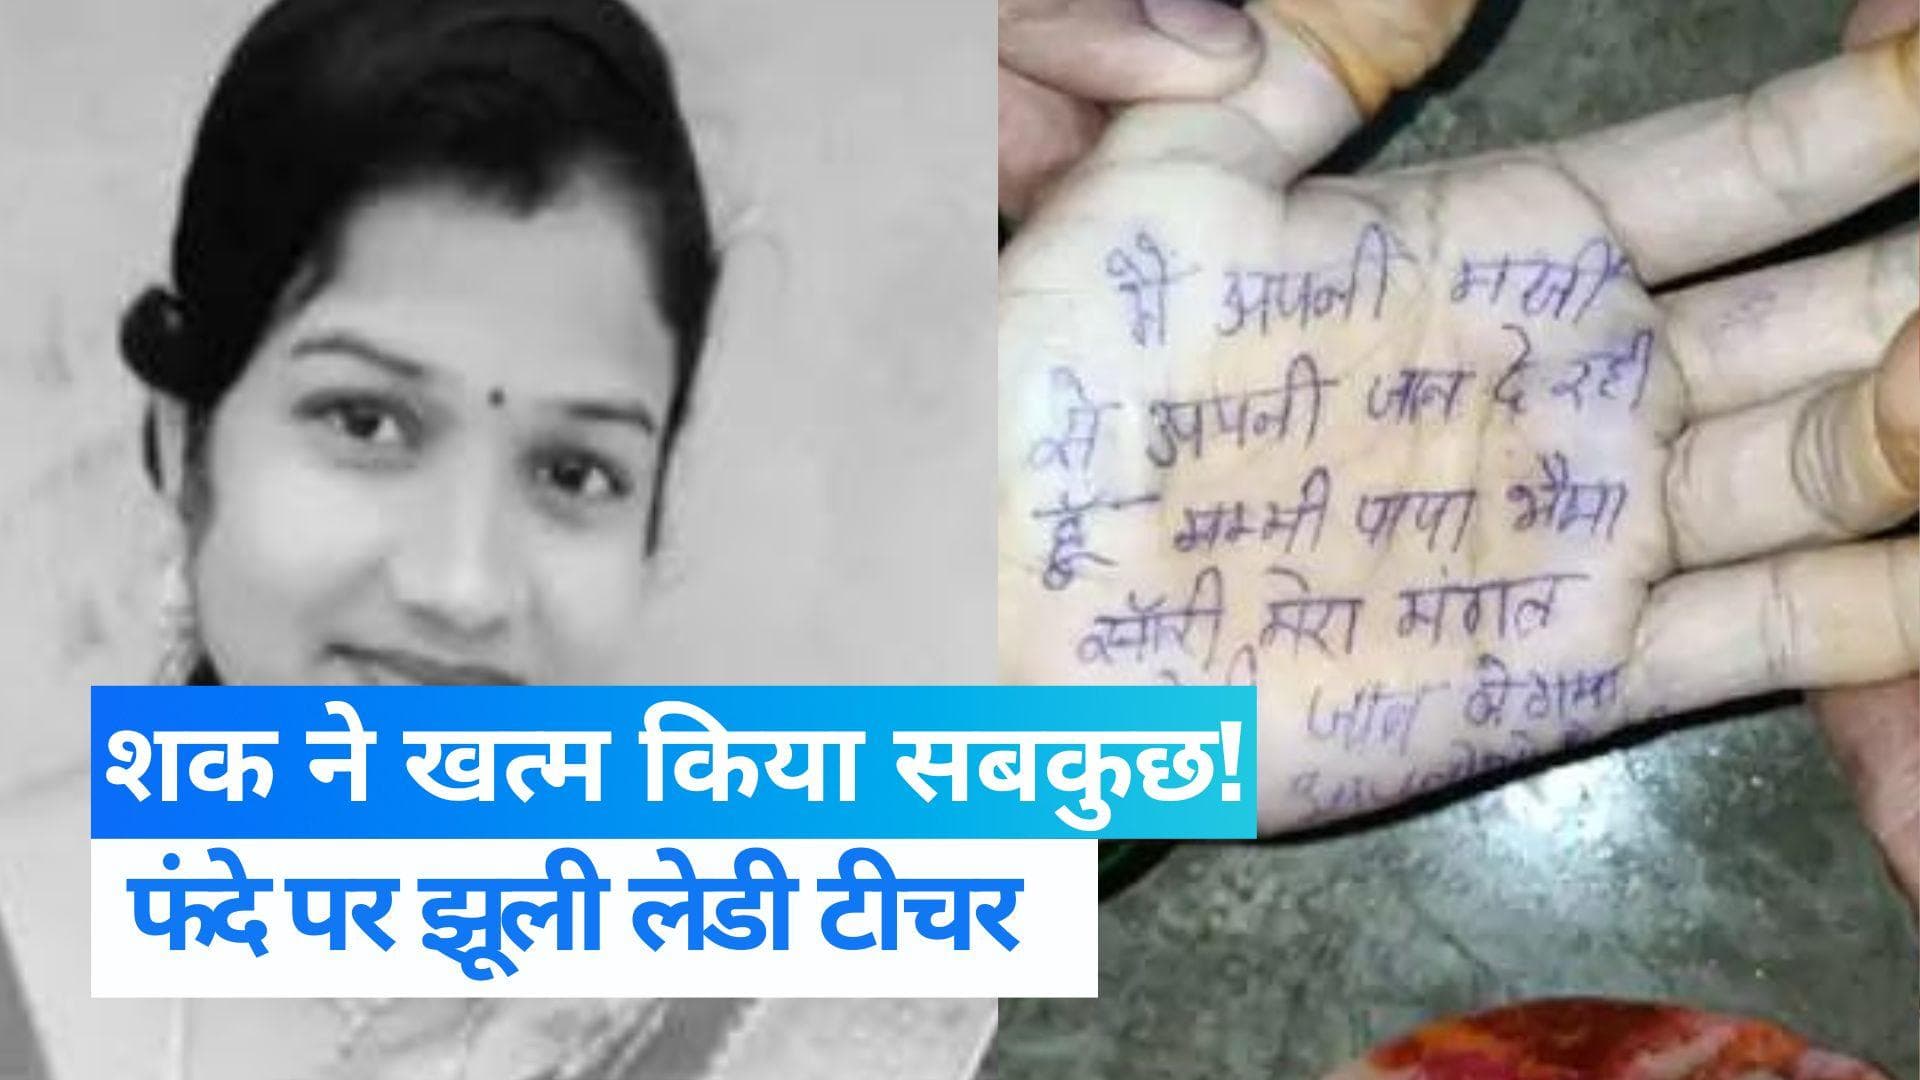 मैं अपनी मर्जी
से अपनी जान दे रही
हूँ मम्मी पापा भैया
सॉरी मेरा मंगल
जान
शक ने खत्म किया सबकुछ!
फंदे पर झूली लेडी टीचर